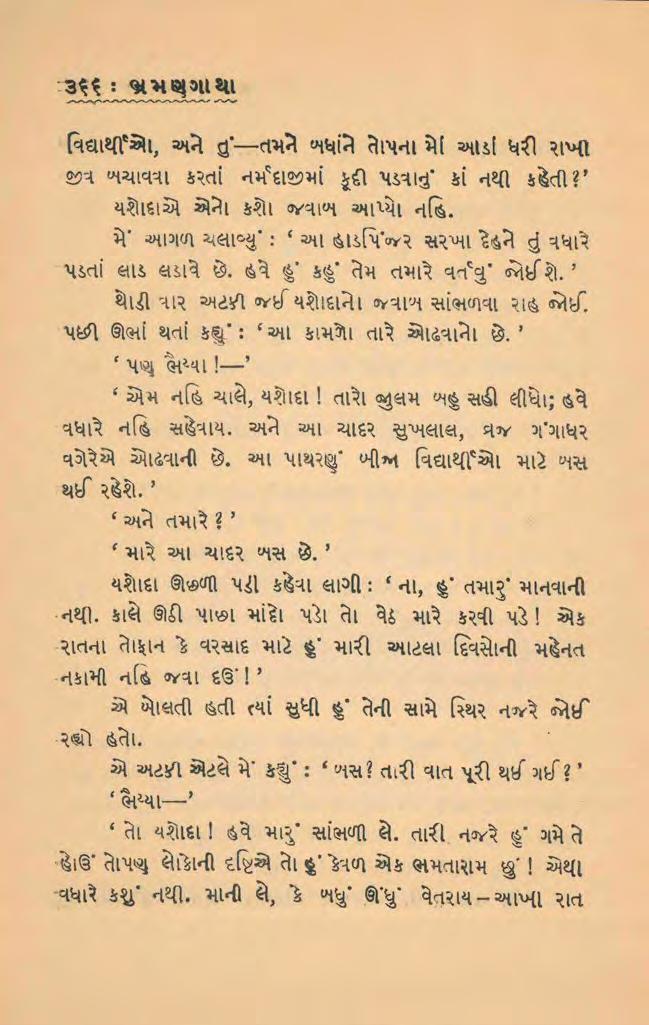 ૩૬૬ : ભ્રમણગાથા
વિદ્યાર્થીઓ, અને તું—તમને બધાંને તોપના મોં આડાં ધરી રાખી
જીવ બચાવવા કરતાં નર્મદાજીમાં કૂદી પડવાનું કાં નથી કહેતી ?’
યશોદાએ એનો કશો જવાબ આપ્યો નહિ.
મેં આગળ ચલાવ્યું : ‘ આ હાડપિંજર સરખા દેહને તું વધારે
પડતાં લાડ લડાવે છે. હવે હું કહું તેમ તમારે વર્તવું જોઈશે. ’
થોડી વાર અટકી જઈ યશોદાનો જવાબ સાંભળવા રાહ જોઈ.
પછી ઊભાં થતાં કહ્યું : ‘ આ કામળો તારે ઓઢવાનો છે. ’
‘ પણ ભૈય્યા !—’
‘ એમ નહિ ચાલે, યશોદા ! તારો જુલમ બહુ સહી લીધો; હવે
વધારે નહિ સહેવાય. અને આ ચાદર સુખલાલ, વ્રજ ગંગાધર
વગેરેએ ઓઢવાની છે. આ પાથરણું બીજા વિદ્યાર્થીઓ માટે બસ
થઈ રહેશે. ’
‘ અને તમારે ? ’
‘ મારે આ ચાદર બસ છે. ’
યશોદા ઊછળી પડી કહેવા લાગી : ‘ ના, હું તમારું માનવાની
નથી. કાલે ઊઠી પાછા માંદો પડો તો વેઠ મારે કરવી પડે ! એક
રાતના તોફાન કે વરસાદ માટે હું મારી આટલા દિવસોની મહેનત
નકામી નહિ જવા દઉં ! ’
એ બોલતી હતી ત્યાં સુધી હું તેની સામે સ્થિર નજરે જોઈ
રહ્યો હતો.
એ અટકી એટલે મેં કહ્યું : ‘ બસ? તારી વાત પૂરી થઈ ગઈ ? ’
‘ ભૈય્યા—’
‘ તો યશોદા ! હવે મારું સાંભળી લે. તારી નજરે હું ગમે તે
હોઉં તોપણ લોકોની દૃષ્ટિએ તો હું કેવળ એક ભમતારામ છું ! એથી
વધારે કશું નથી. માની લે, કે બધું ઊંધું વેતરાય – આખા રાત